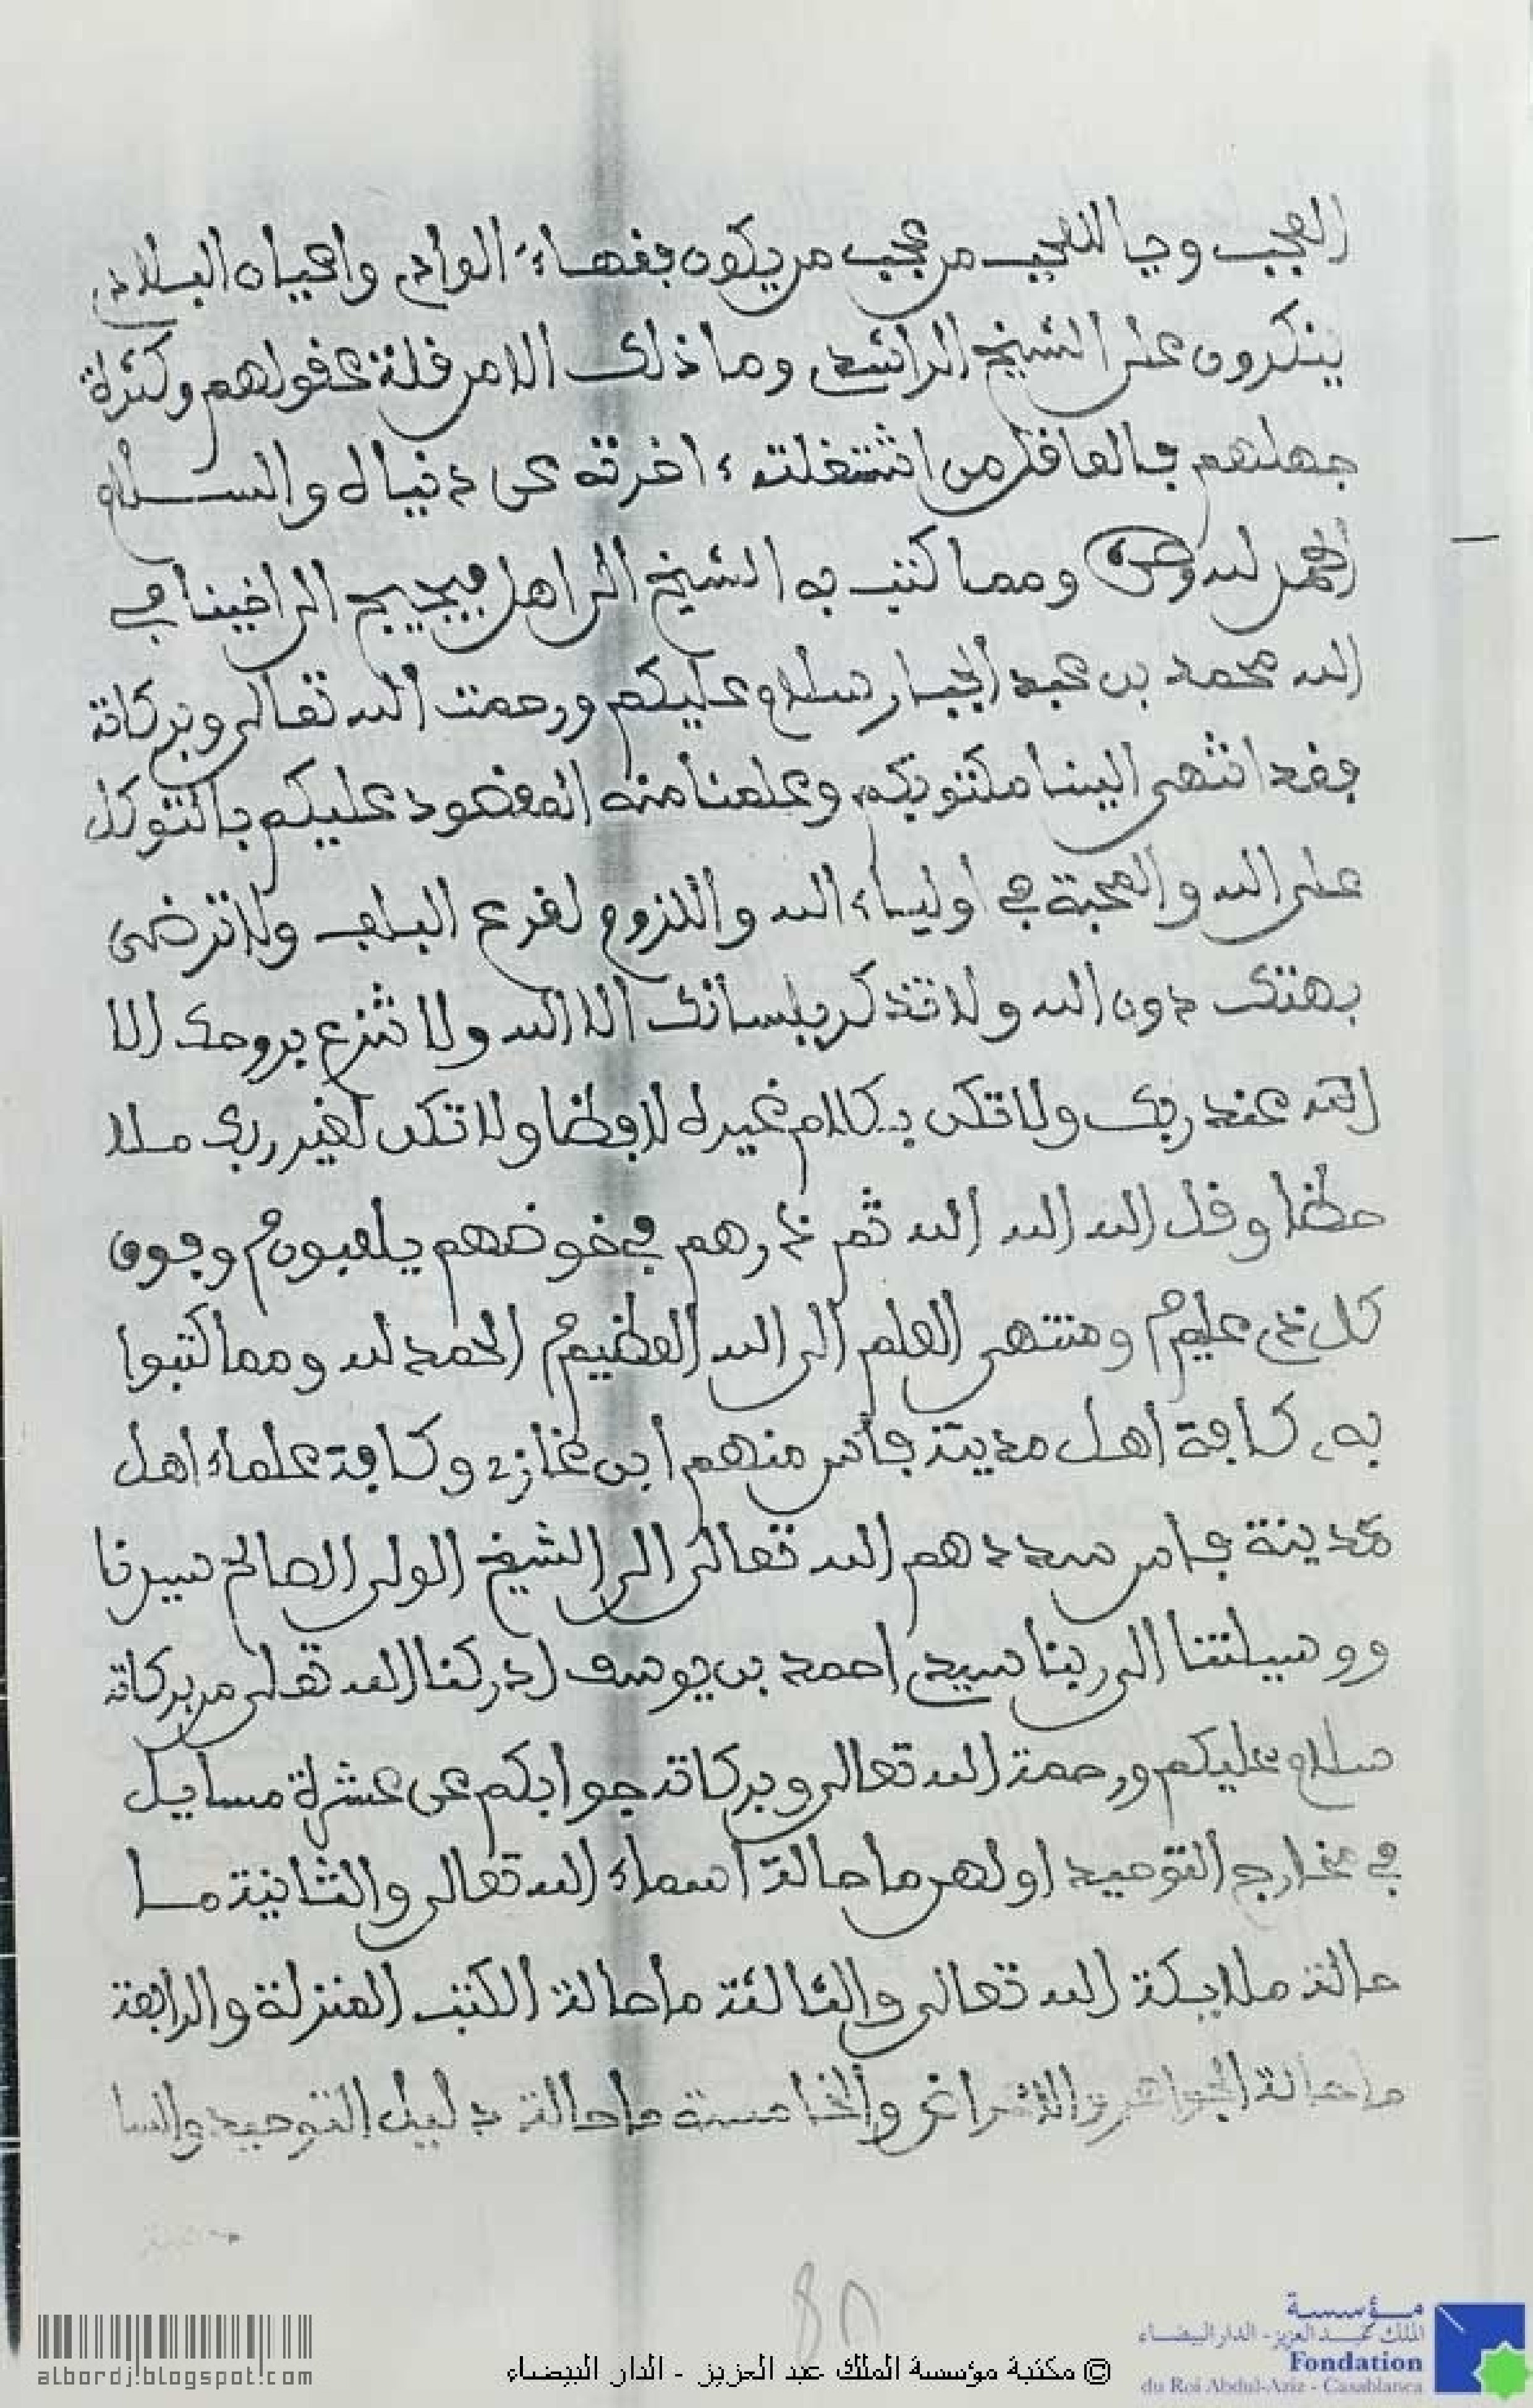 العجب ويا للعجب من عجب من يكون بفقهاء الوادي واعيان البلاد
ينكرون على الشيخ الراشدي وما ذلك الا من قلة عقولهم وكثرة
جهلهم فالعاقل من اشتغلته ءاخرته عن دنياه والسلام
الحمد لله وحده ومما كتب به الشيخ الى اهل فجيج الى اخينا في
الله محمد بن عبد الجبار سلام عليكم ورحمت الله تعالى وبركاته
فقد انتهى الينا مكتوبكم وعلمنا منه المقصود عليكم بالتوكل
على الله والمحبة في اولياء الله واللزوم لقرع الباب ولا ترضى
بهتك دون الله ولا تذكر بلسانك الا الله ولا تنزع بروحك الا
الله عند ربك ولا تكن بكلام غيره لافظا ولا تكن لغير ربك ملا
حظا وقل الله الله الله ثم ذرهم في خوضهم يلعبون وفوق
كل ذي عليم ومنتهى العلم الى الله العظيم الحمد لله ومما كتبوا
به كافة اهل مدينة فاس منهم ابن غازي وكافة علماء اهل
مدينة فاس سددهم الله تعالى الى الشيخ الولي الصالح سيدنا
ووسيلتنا الى ربنا سيدي احمد بن يوسف ادركنا الله تعلى من بركاته
سلام عليكم ورحمة الله تعالى وبركاته جوابكم عن عشرة مسايل
في مخارج التوحيد اولهم ما حالة اسماء الله تعالى والثانية ما
حالة ملايكة الله تعالى والثالثة ما حالة الكتب المنزلة والرابعة
ما حالة الجواهر والاعراض والخامسة ما حالة دليل التوحيد والسا
80
albordj.blogspot.com
© مكتبة مؤسسة الملك عبد العزيز - الدار البيضاء
مؤسسة
الملك عبد العزيز - الدار البيضاء
Fondation
du Roi Abdul-Aziz - Casablanca